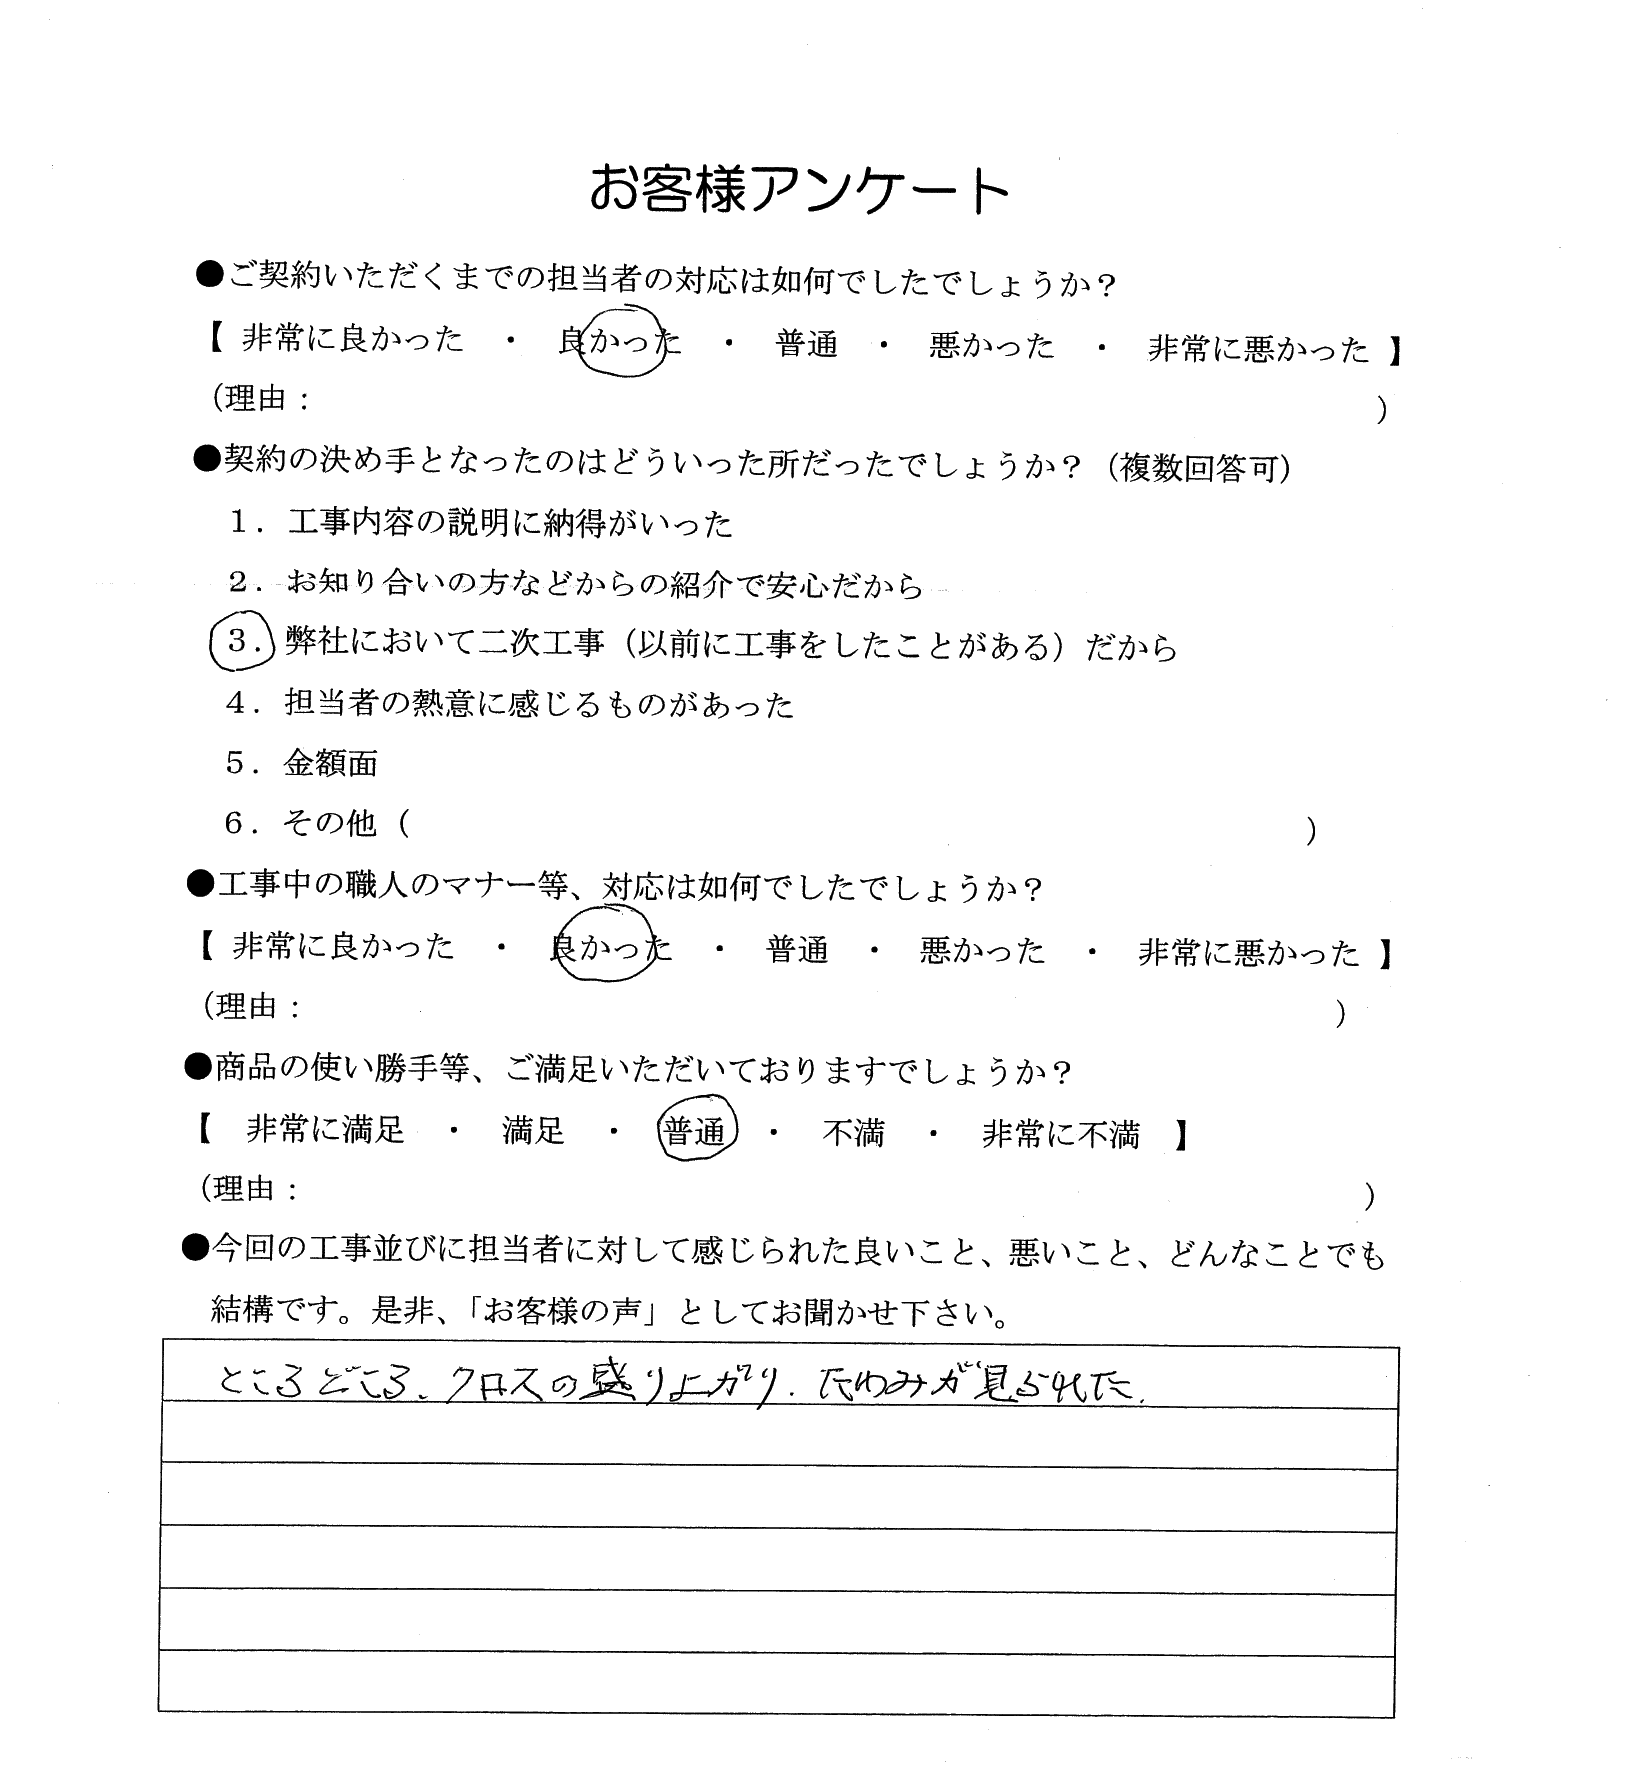 お客様アンケート
●ご契約いただくまでの担当者の対応は如何でしたでしょうか？
【 非常に良かった ・ 良かった ・ 普通 ・ 悪かった ・ 非常に悪かった 】
（理由： ）
●契約の決め手となったのはどういった所だったでしょうか？（複数回答可）
１．工事内容の説明に納得がいった
２．お知り合いの方などからの紹介で安心だから
３．弊社において二次工事（以前に工事をしたことがある）だから
４．担当者の熱意に感じるものがあった
５．金額面
６．その他（ ）
●工事中の職人のマナー等、対応は如何でしたでしょうか？
【 非常に良かった ・ 良かった ・ 普通 ・ 悪かった ・ 非常に悪かった 】
（理由： ）
●商品の使い勝手等、ご満足いただいておりますでしょうか？
【 非常に満足 ・ 満足 ・ 普通 ・ 不満 ・ 非常に不満 】
（理由： ）
●今回の工事並びに担当者に対して感じられた良いこと、悪いこと、どんなことでも
結構です。是非、「お客様の声」としてお聞かせ下さい。
ところどころ、クロスの盛り上がり、たわみが見られた、